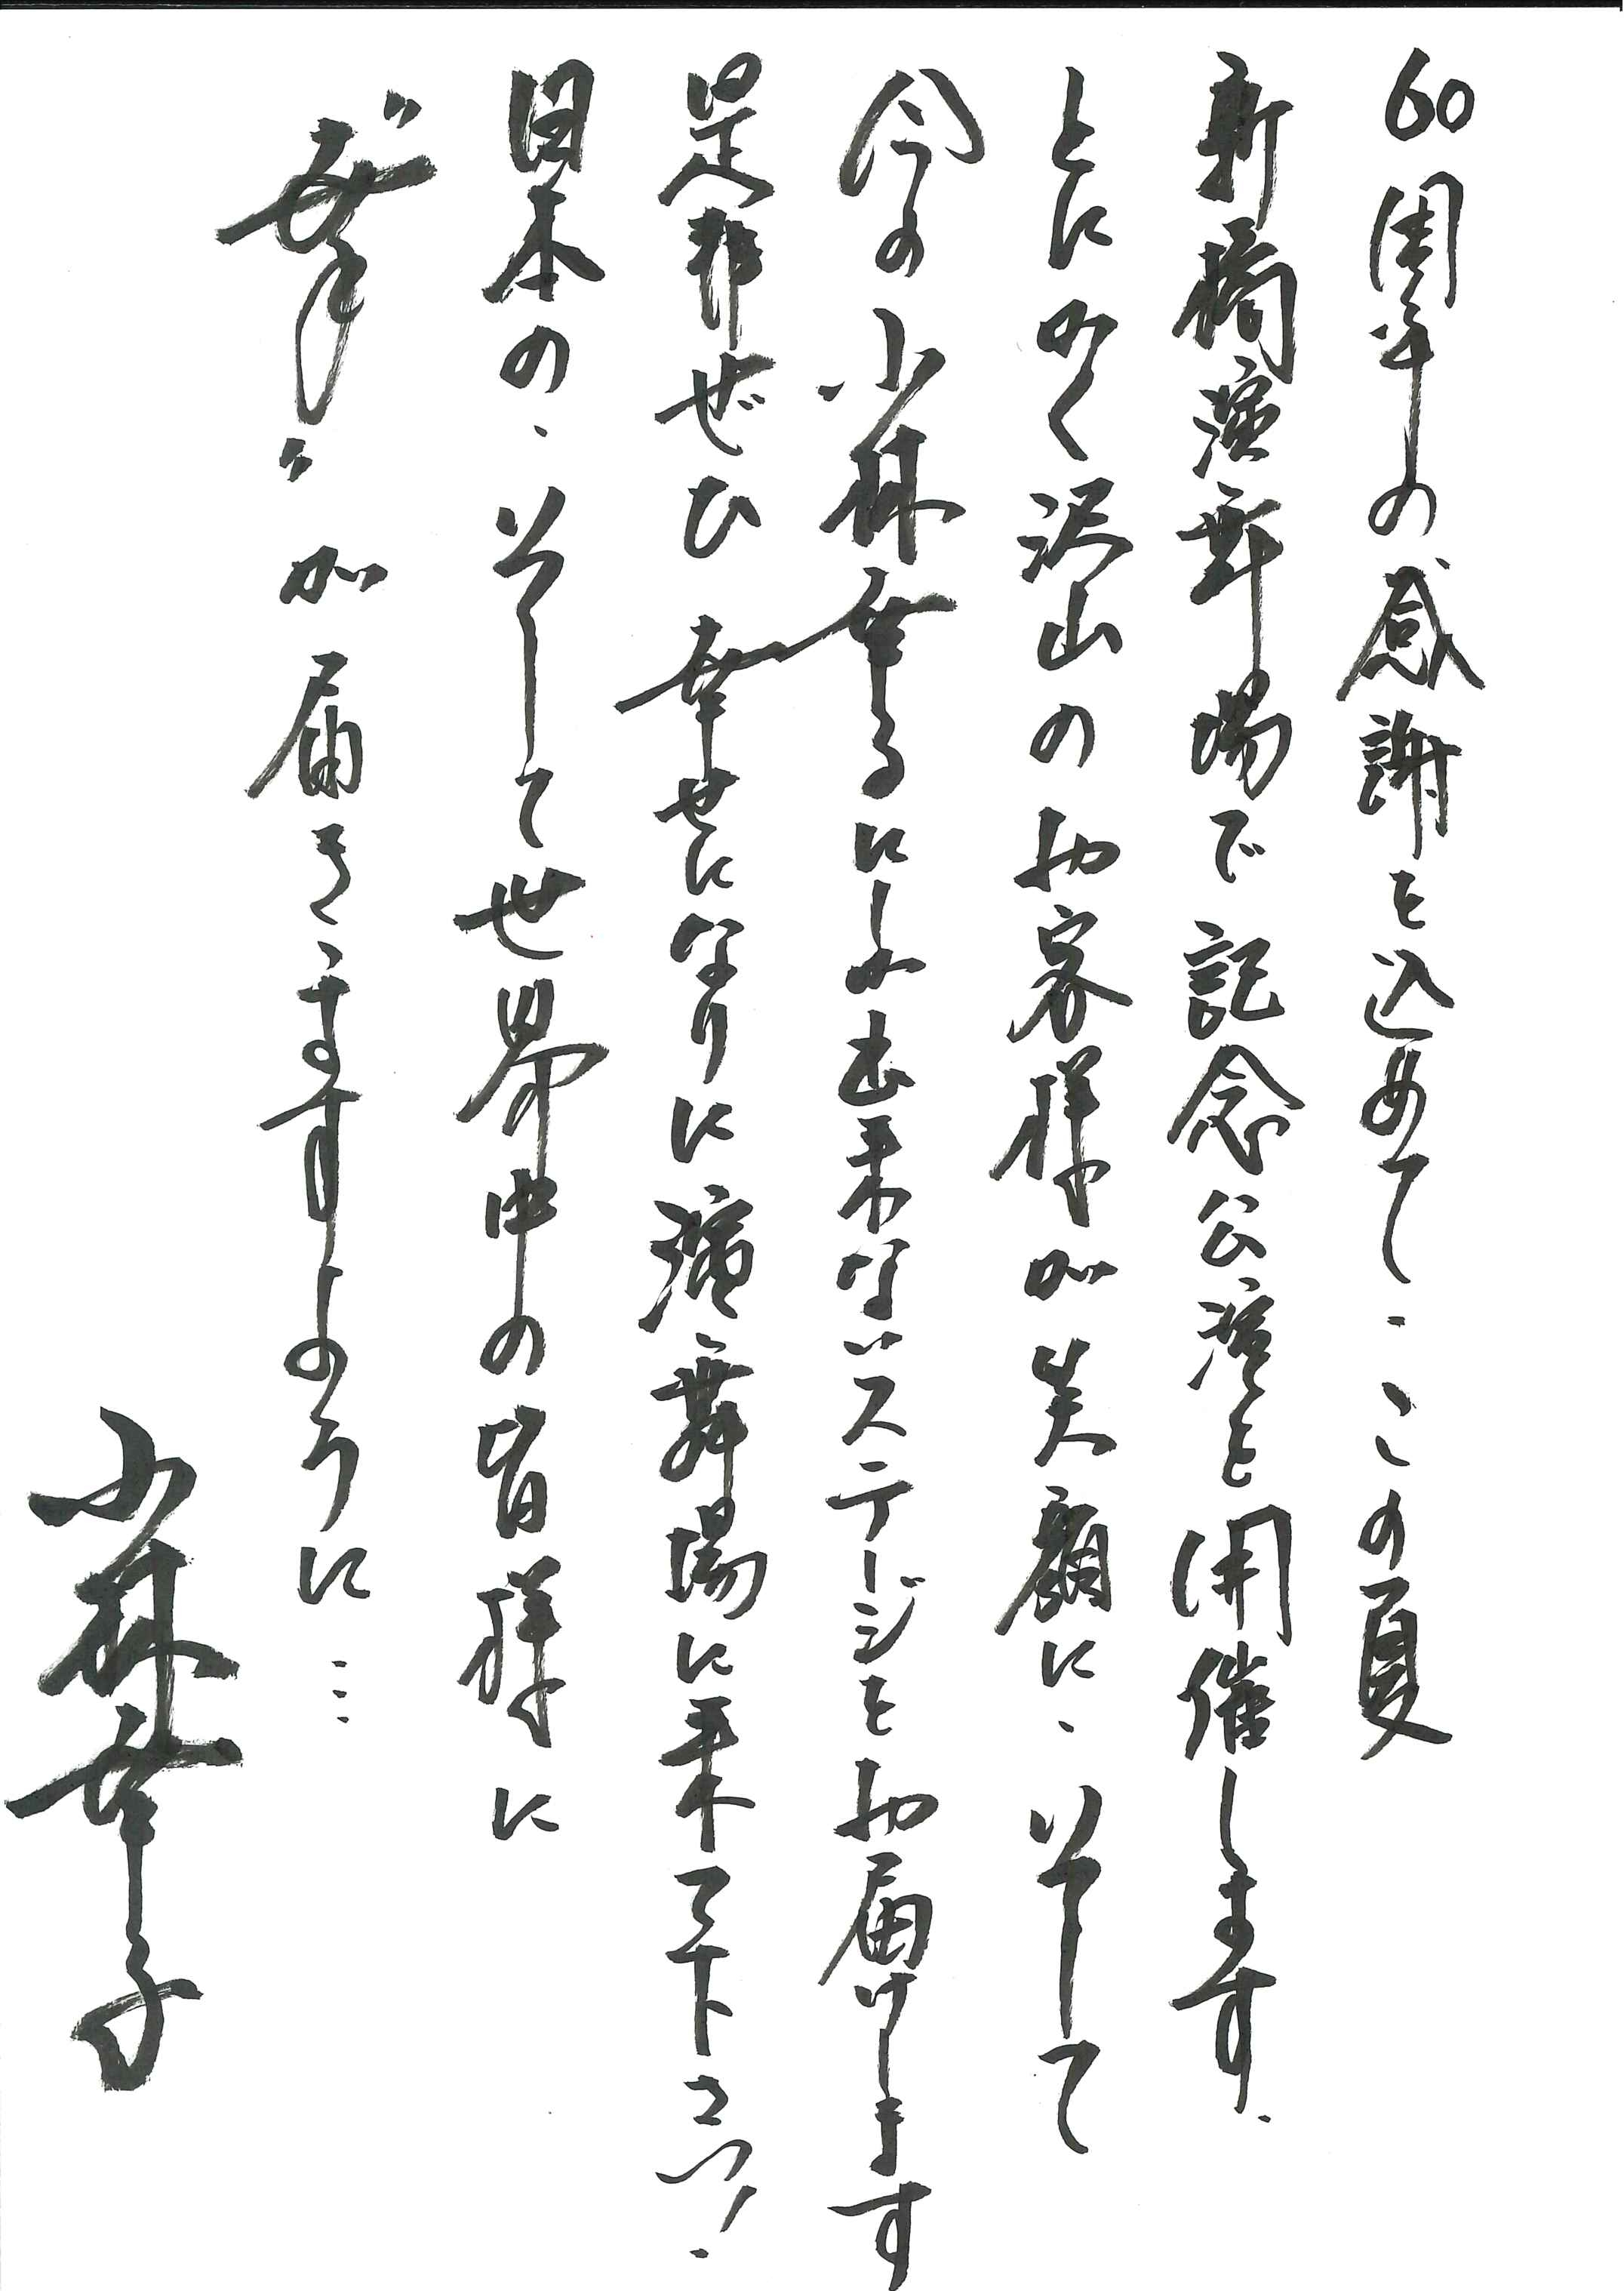 60周年の感謝を込めて…この夏
新橋演舞場で記念公演を開催します.
とにかく沢山のお客様が笑顔に、そして
今の小林幸子にしか出来ないステージをお届けします
是非ぜひ幸せになりに演舞場に来て下さい!
日本の、そして世界中の皆様に
"幸"が届きますように…
小林幸子